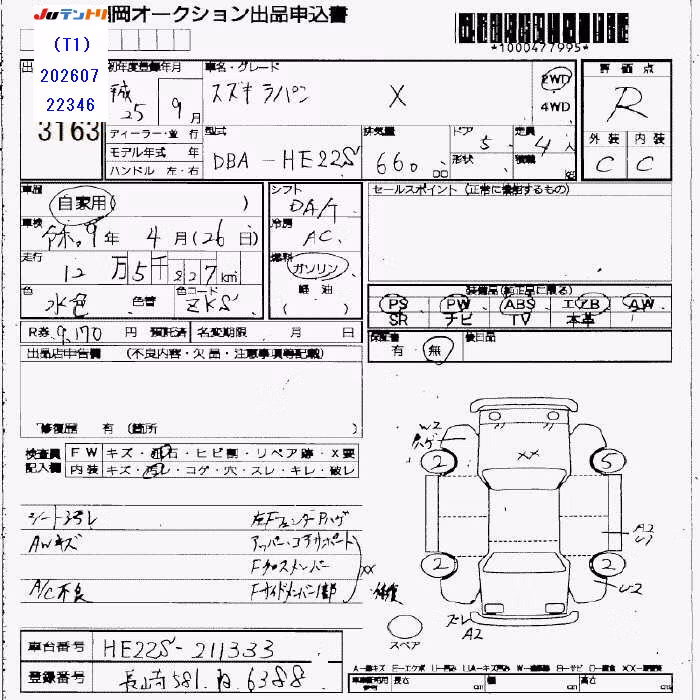 Juテントリ 岡オークション出品申込書
*1000477995*
(T1)
202607
22346
3163
初年度登録年月
平成 25 年 9 月
ディーラー・並行
モデル年式 年
ハンドル 左・右
車名・グレード
スズキ ラパン X
2WD
4WD
評価点
R
外装 内装
C C
型式
DBA-HE22S
排気量
660 cc
ドア 5
形状
定員 4 人
積載
車歴
自家用( )
車検
令和 9 年 4 月(26日)
走行
12 万 5 千 827 km
色
水色 色替
色コード
ZKS
シフト
DA/T
冷房
AC
燃料
ガソリン
軽油
( )
セールスポイント (正常に機能するもの)
装備品(純正品に限る)
PS PW ABS エアB AW
SR ナビ TV 本革
R券 9,170 円 預託済 名変期限 月 日
保証書
有 無
後日品
出品店申告欄 (不良内容・欠品・注意事項等記載)
修復歴 有 (箇所 )
検査員
記入欄
FW キズ・飛石・ヒビ割・リペア跡・X要
内装 キズ・汚レ・コゲ・穴・スレ・キレ・破レ
シート汚レ 左FフェンダーPハゲ
AWキズ アッパー・コアサポート
Fクロスメンバー XX
A/C不良 Fサイドメンバー1部 修復
W2
Pハゲ
XX
2 5
A2
U1
2 2
U2
ズレ
A2
スペア
車台番号 HE22S-211333
登録番号 長崎 581 6388
車輌番号 参考 長さ cm 幅 cm 高さ cm